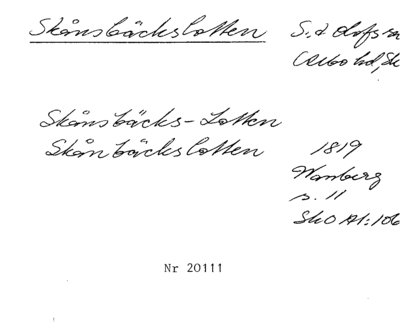 Skånsbäckslotten S. t Olofs sn
Skånsbäcks-Lotten
Skånbäckslotten 1819
Wanberg
s. 11
SkO A1:106
Nr 20111